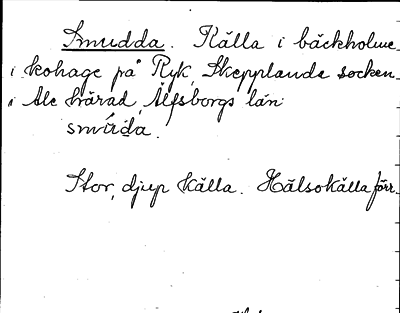 Smudda. Källa i bäckholme
i kohage på Ryk, Skepplanda socken
i Ale härad, Älfsborgs län
smúda.
Stor, djup källa. Hälsokälla förr.